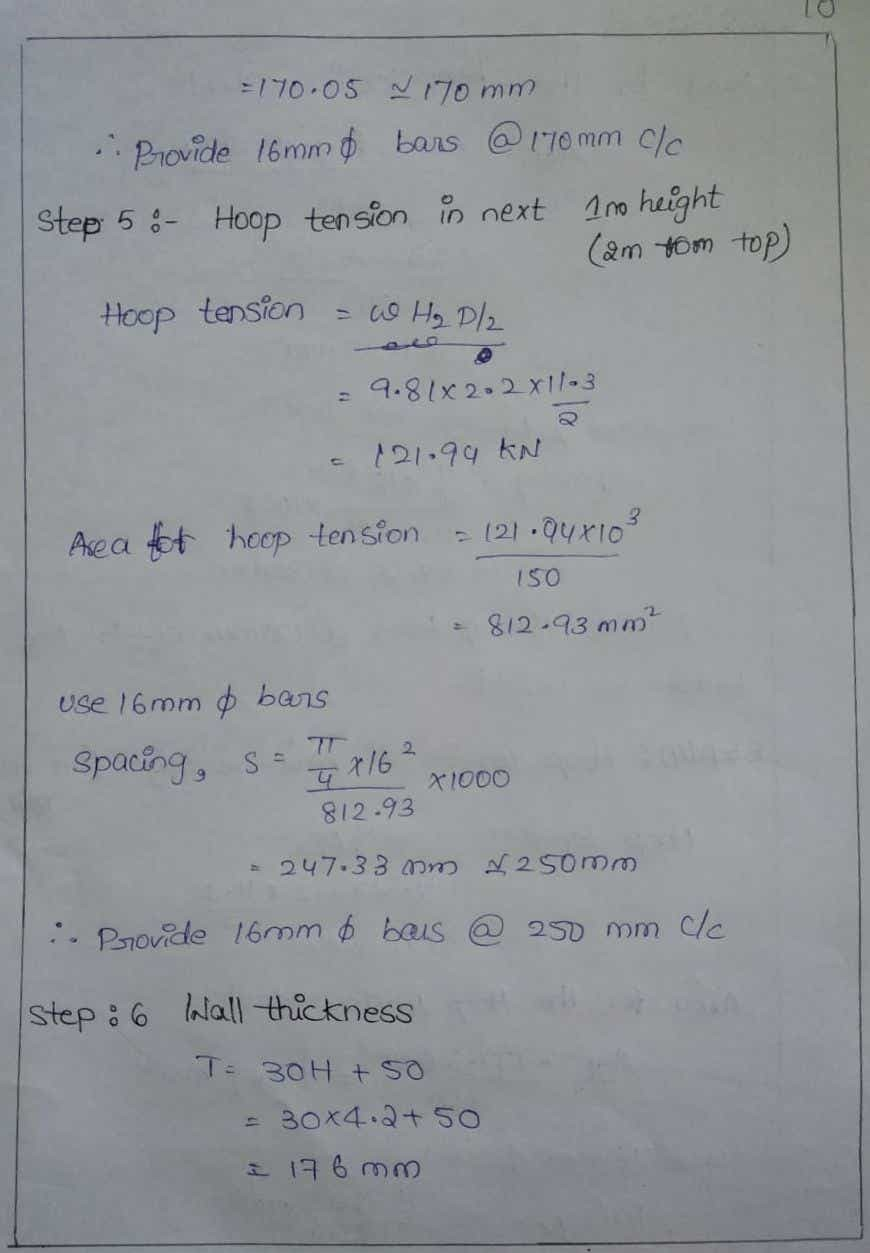 10
=170.05 ≃ 170 mm
∴ Provide 16mm ϕ bars @ 170mm c/c
Step 5 :- Hoop tension in next 1m height
(2m from top)
Hoop tension = ω H₂ D/2
= 9.81 x 2.2 x 11.3
2
= 121.94 KN
Area for hoop tension = 121.94 x 10³
150
= 812.93 mm²
use 16mm ϕ bars
Spacing, S = π/4 x 16² x 1000
812.93
= 247.33 mm ≃ 250mm
∴ Provide 16mm ϕ bars @ 250 mm c/c
Step : 6 Wall thickness
T = 30H + 50
= 30 x 4.2 + 50
= 176 mm